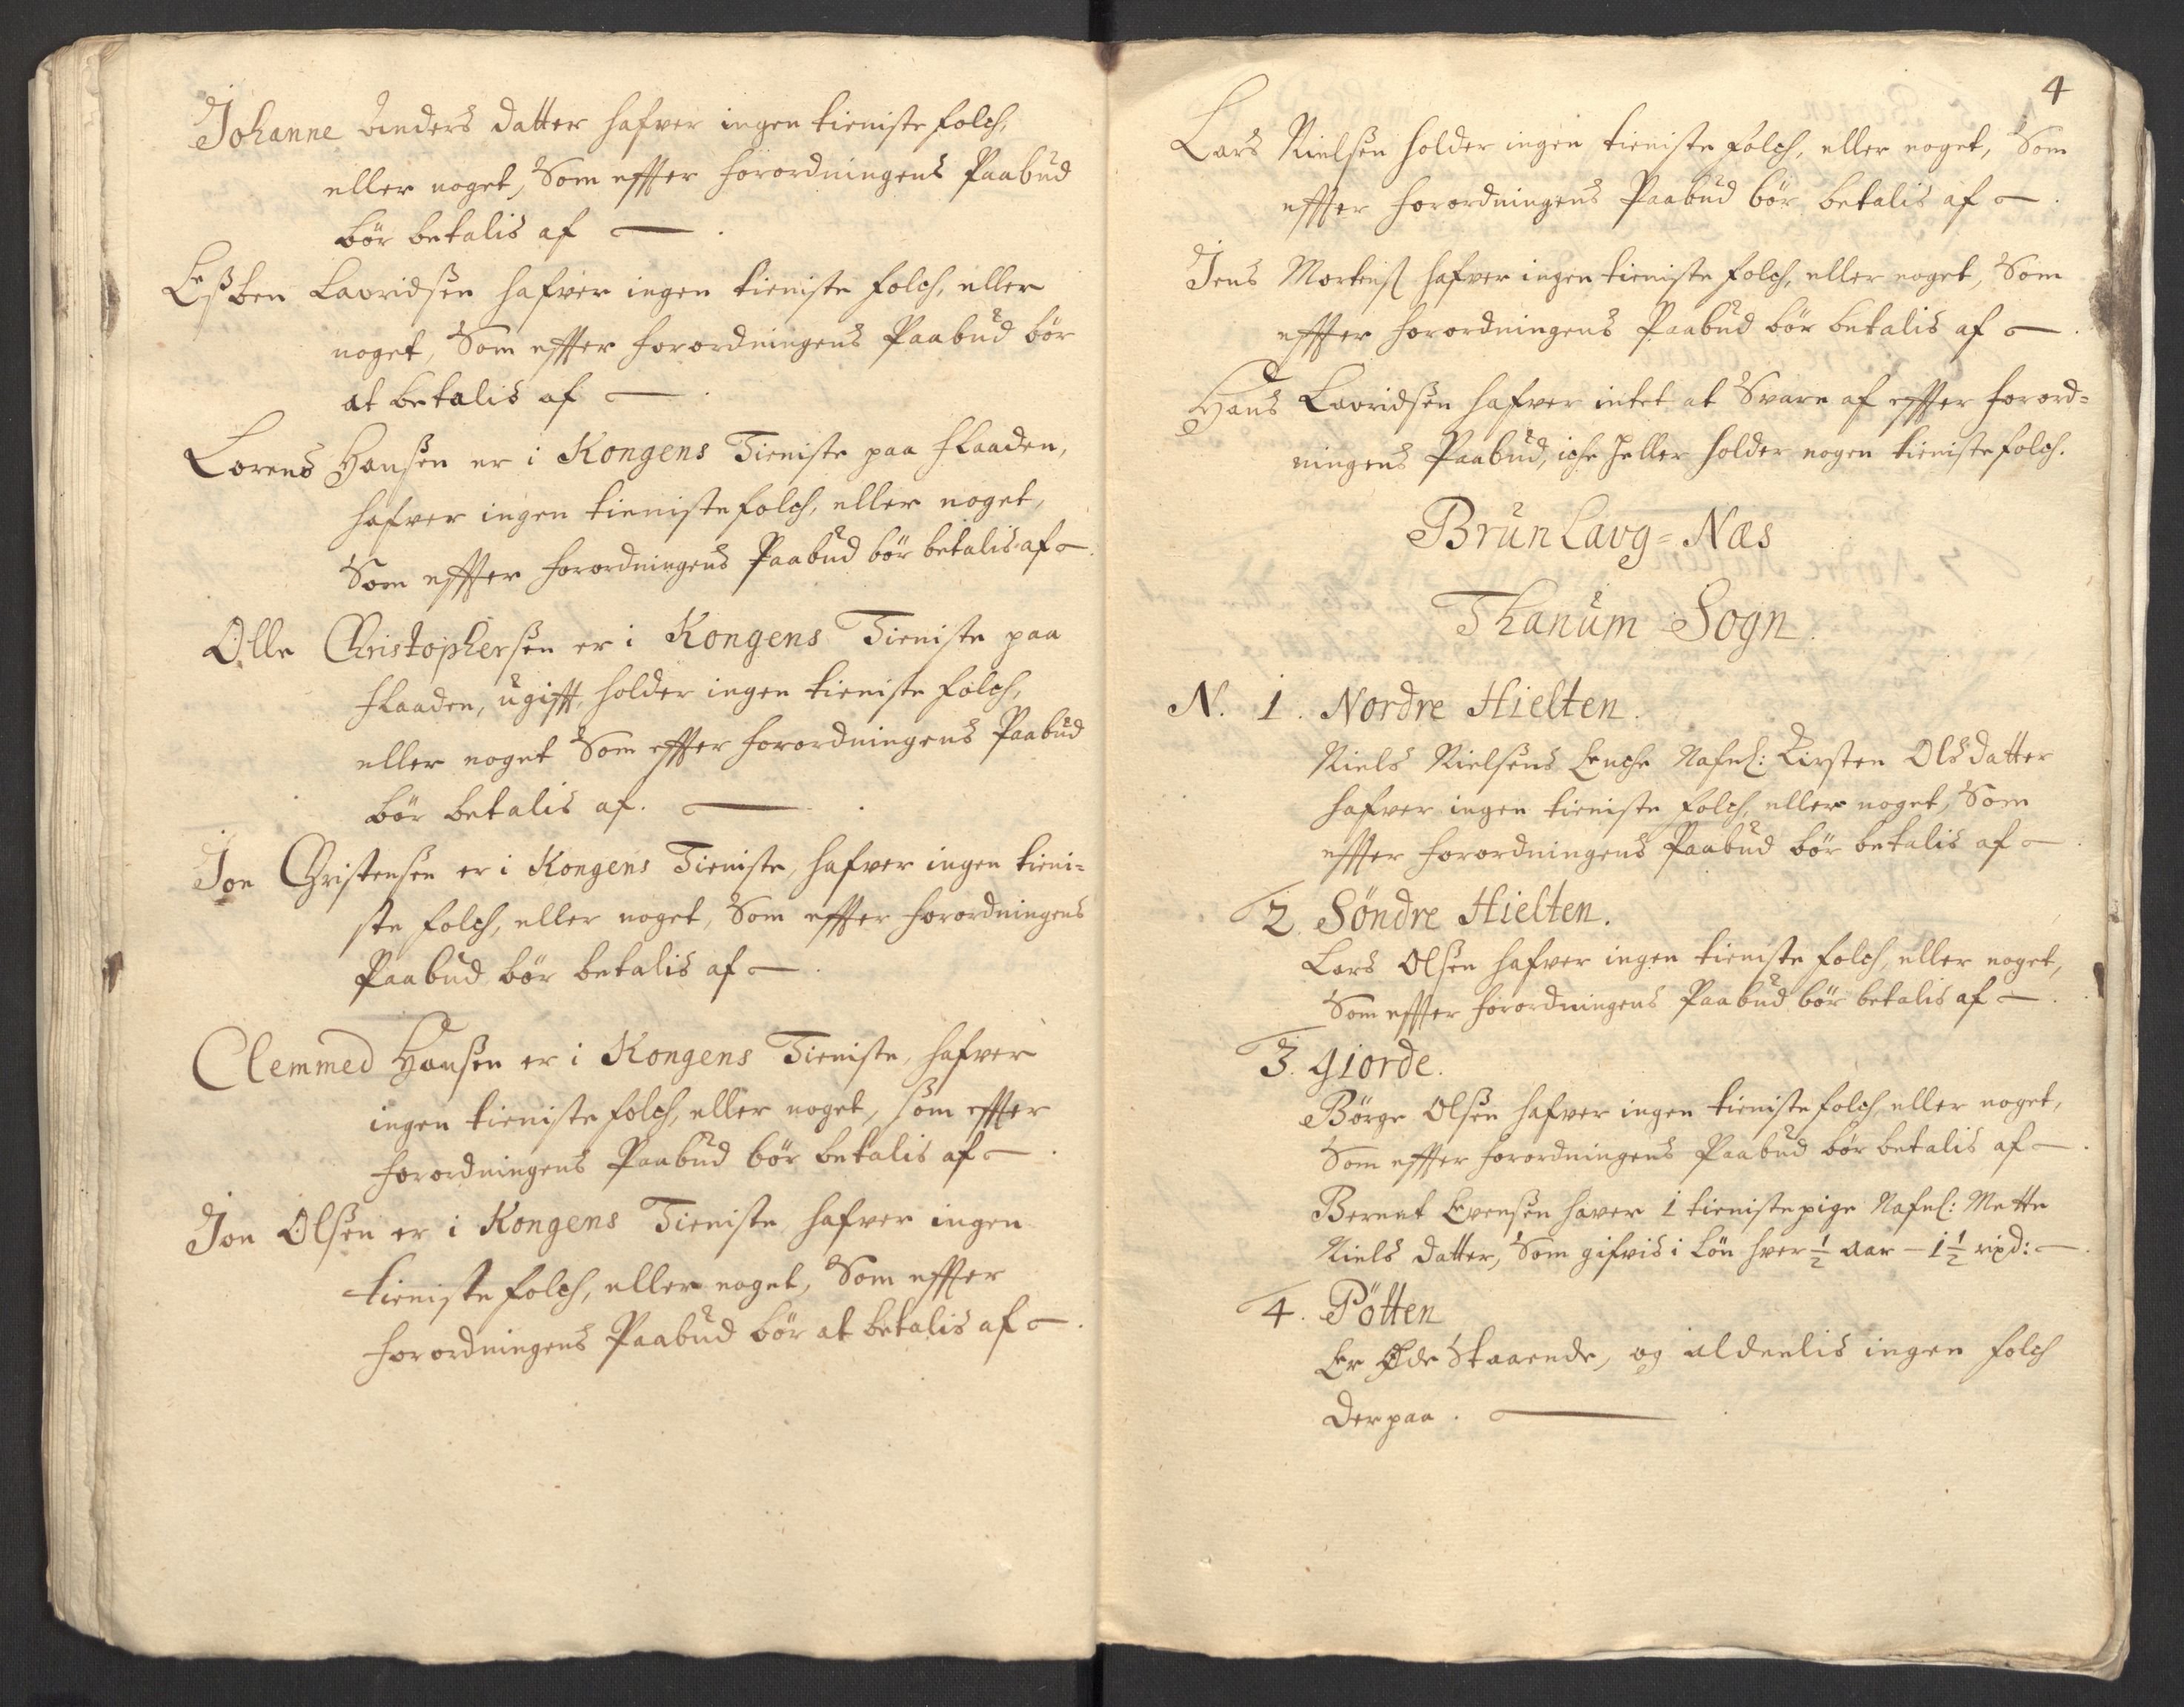 Johanne Anders datter hafver ingen tieniste folch,
eller noget, Som effter forordningens Paabud
bör betalis af —.
Eßben Lavridsen hafver ingen tieniste folch, eller
noget, Som effter forordningens Paabud bör
at betalis af —.
Lorens Hansen er i Kongens Tieniste paa flaaden,
hafver ingen tieniste folch, eller noget,
Som effter forordningens Paabud bör betalis af —.
Olle Christophersen er i Kongens Tieniste paa
flaaden, ugifft, holder ingen tieniste folch,
eller noget Som effter forordningens Paabud
bör betalis af. —.
Jon Christensen er i Kongens Tieniste, hafver ingen tieni-
ste folch, eller noget, Som effter forordningens
Paabud bör betalis af —.
Clemmed Hansen er i Kongens Tieniste, hafver
ingen tieniste folch, eller noget, som effter
forordningens Paabud bör betalis af —.
Jon Olsen er i Kongens Tieniste, hafver ingen
tieniste folch, eller noget, Som effter
forordningens Paabud bör at betalis af —.
4
Lars Nielsen holder ingen tieniste folch, eller noget, Som
effter forordningens Paabud bör betalis af —.
Jens Mortenß hafver ingen tieniste folch, eller noget, Som
effter forordningens Paabud bör betalis af —.
Hans Lavridsen hafver intet at Svare af effter forord=
ningens Paabud, iche heller holder nogen tieniste folch.
Brunlavg=Næs
Thanum Sogn.
N. 1. Nordre Hielten.
Niels Nielsens Enche Nafnl: Kirsten Olsdatter
hafver ingen tieniste folch, eller noget, Som
effter forordningens Paabud bör betalis af —.
2. Söndre Hielten.
Lars Olsen hafver ingen tieniste folch, eller noget,
Som effter forordningens Paabud bör betalis af —.
3. Giorde.
Börge Olsen hafver ingen tieniste folch, eller noget,
Som effter forordningens Paabud bör betalis af —.
Bernt Evensen haver 1 tieniste pige Nafnl: Mette
Niels datter, Som gifvis i Lön hver ½ Aar — 1½ rixd: —.
4. Pötten
Er Øde Staaende, og aldeelis ingen folch
der paa. —